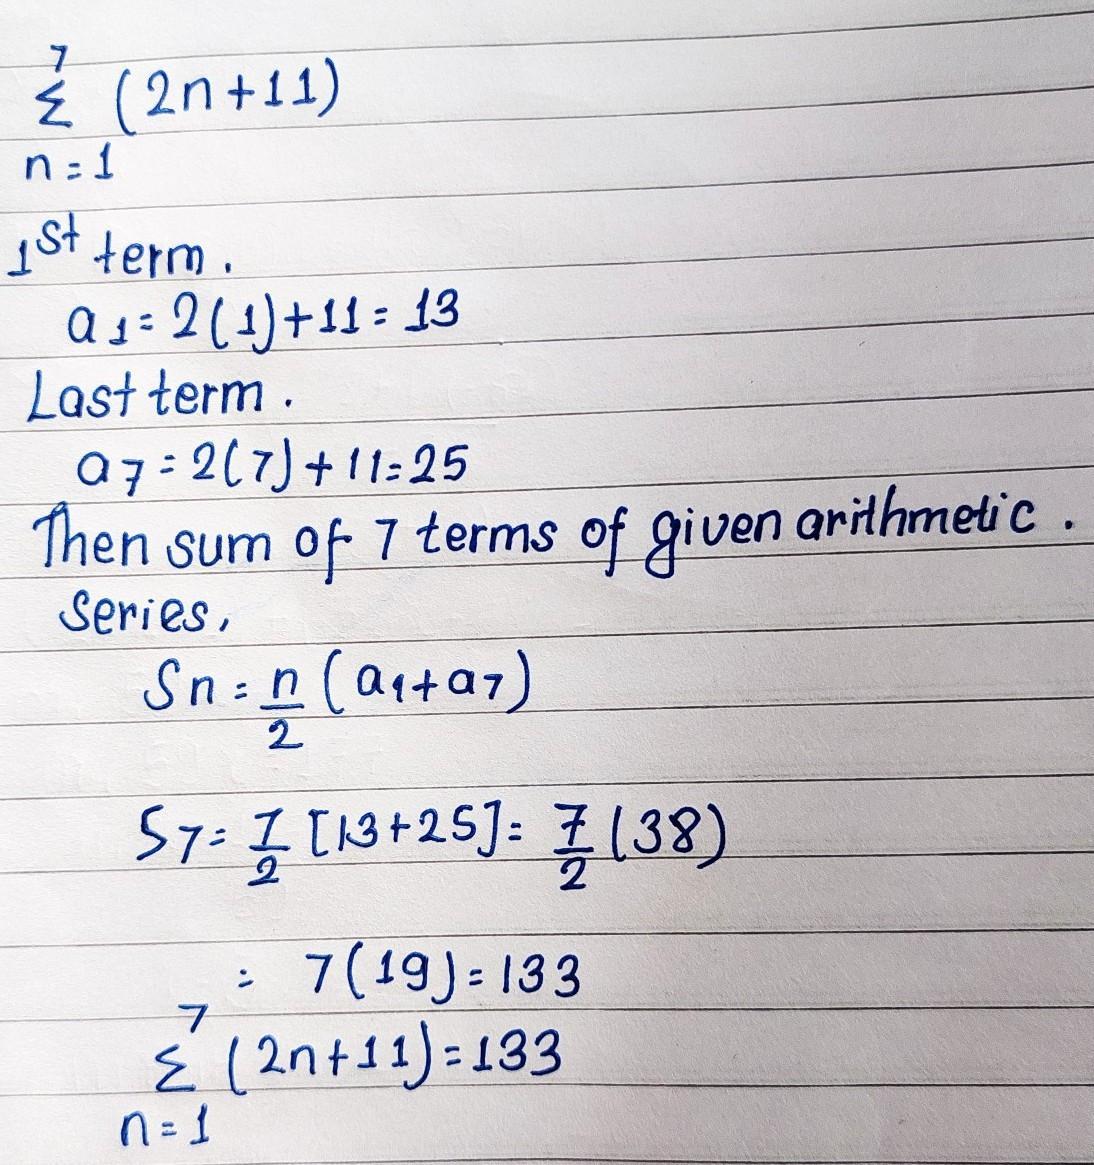 7
Σ (2n+11)
n=1
1st term.
a1=2(1)+11=13
Last term.
a7=2(7)+11=25
Then sum of 7 terms of given arithmetic.
Series,
Sn=n/2(a1+a7)
S7=7/2[13+25]=7/2(38)
= 7(19)=133
7
Σ (2n+11)=133
n=1